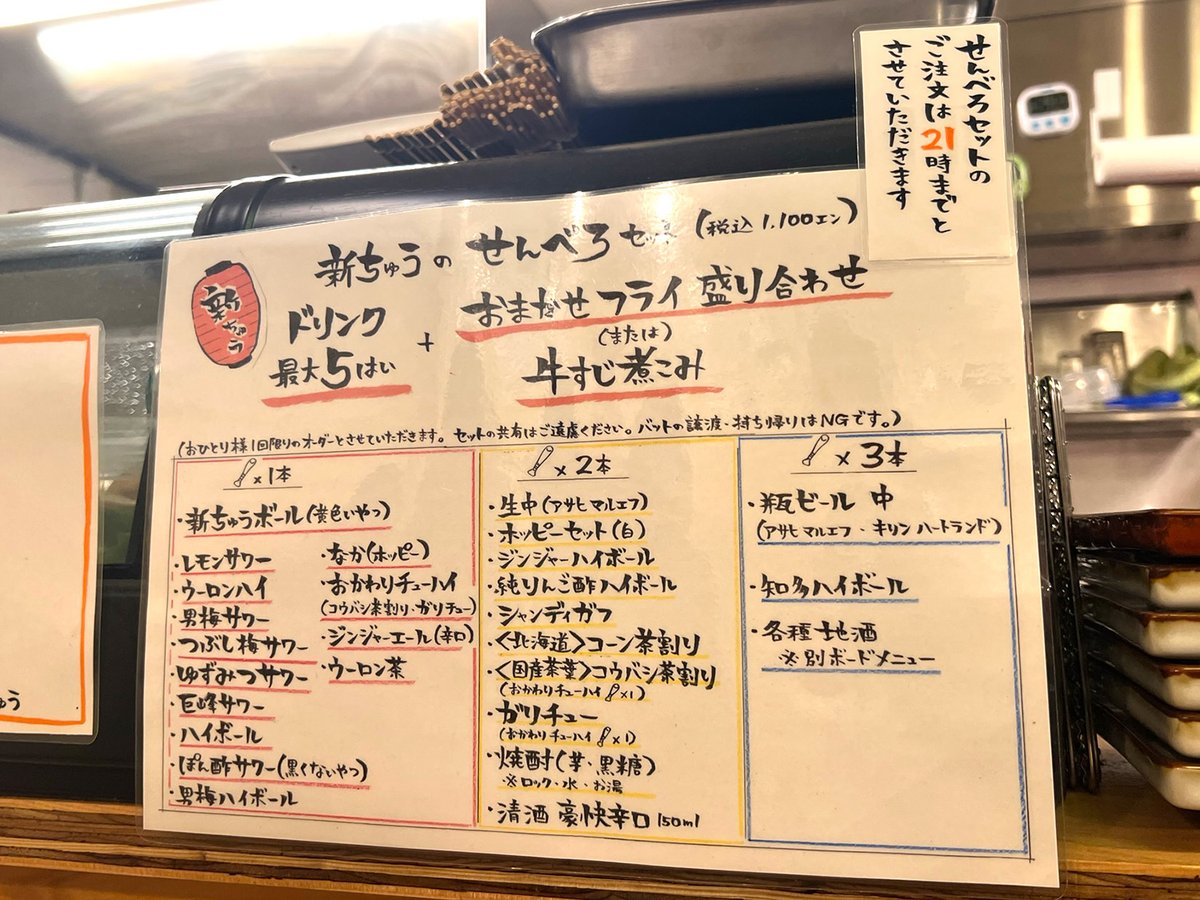 せんべろセットの
ご注文は21時までと
させていただきます
新ちゅうの せんべろセット (税込1.100エン)
新ちゅう
ドリンク
最大5はい
+
おまかせフライ盛り合わせ
(または)
牛すじ煮こみ
(おひとり様1回限りのオーダーとさせていただきます。セットの共有はご遠慮ください。バットの譲渡・持ち帰りはNGです。)
×1本
・新ちゅうボール(黄色いやつ)
・レモンサワー
・ウーロンハイ
・男梅サワー
・つぶし梅サワー
・ゆずみつサワー
・巨峰サワー
・ハイボール
・ぽん酢サワー(黒くないやつ)
・男梅ハイボール
・なか(ホッピー)
・おかわりチューハイ
(コウバシ茶割り・ガリチュー)
・ジンジャーエール(辛口)
・ウーロン茶
×2本
・生中(アサヒマルエフ)
・ホッピーセット(白)
・ジンジャーハイボール
・純りんご酢ハイボール
・シャンディガフ
・〈北海道〉コーン茶割り
・〈国産茶葉〉コウバシ茶割り
(おかわりチューハイ ×1)
・ガリチュー
(おかわりチューハイ ×1)
・焼酎(芋・黒糖)
※ロック・水・お湯
・清酒 豪快辛口 150ml
×3本
・瓶ビール 中
(アサヒマルエフ・キリンハートランド)
・知多ハイボール
・各種地酒
※別ボードメニュー
ゅう